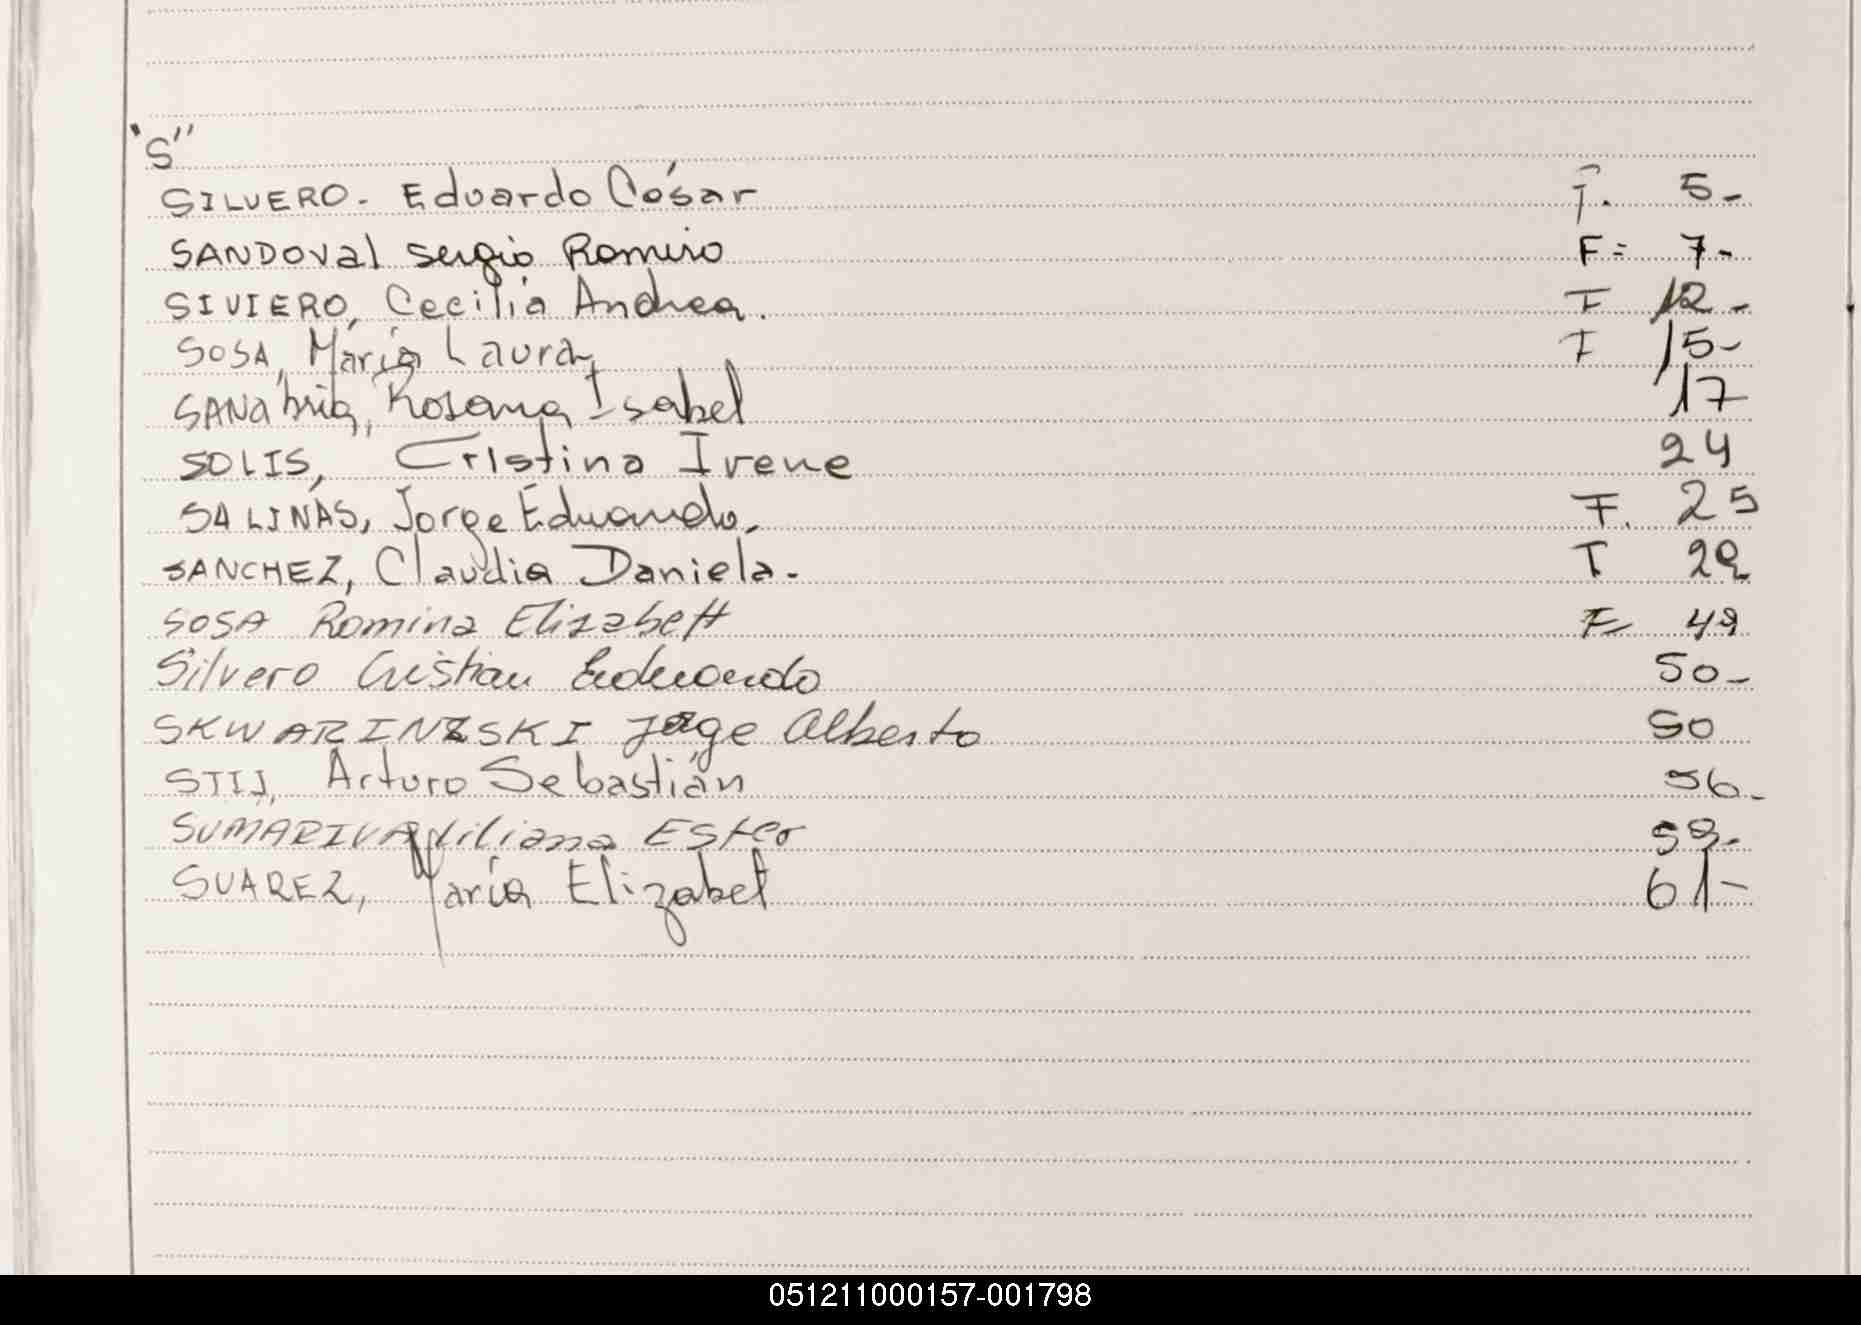 "S"
SILVERO. Eduardo César F. 5-
SANDOVAL Sergio Ramiro F= 7-
SIVIERO, Cecilia Andrea. F 12-
SOSA, María Laura F 15-
SANabria, Rosana Isabel 17
SOLIS, Cristina Irene 24
SALINAS, Jorge Eduardo. F. 25
SANCHEZ, Claudia Daniela. F 29
SOSA Romina Elizabett F 49
Silvero Cristian Eduardo 50-
SKWARINZSKI Jorge Alberto 50
STIJ, Arturo Sebastián 56-
SUMARIVA Liliana Ester 59-
SUAREZ, María Elizabet 61-
051211000157-001798